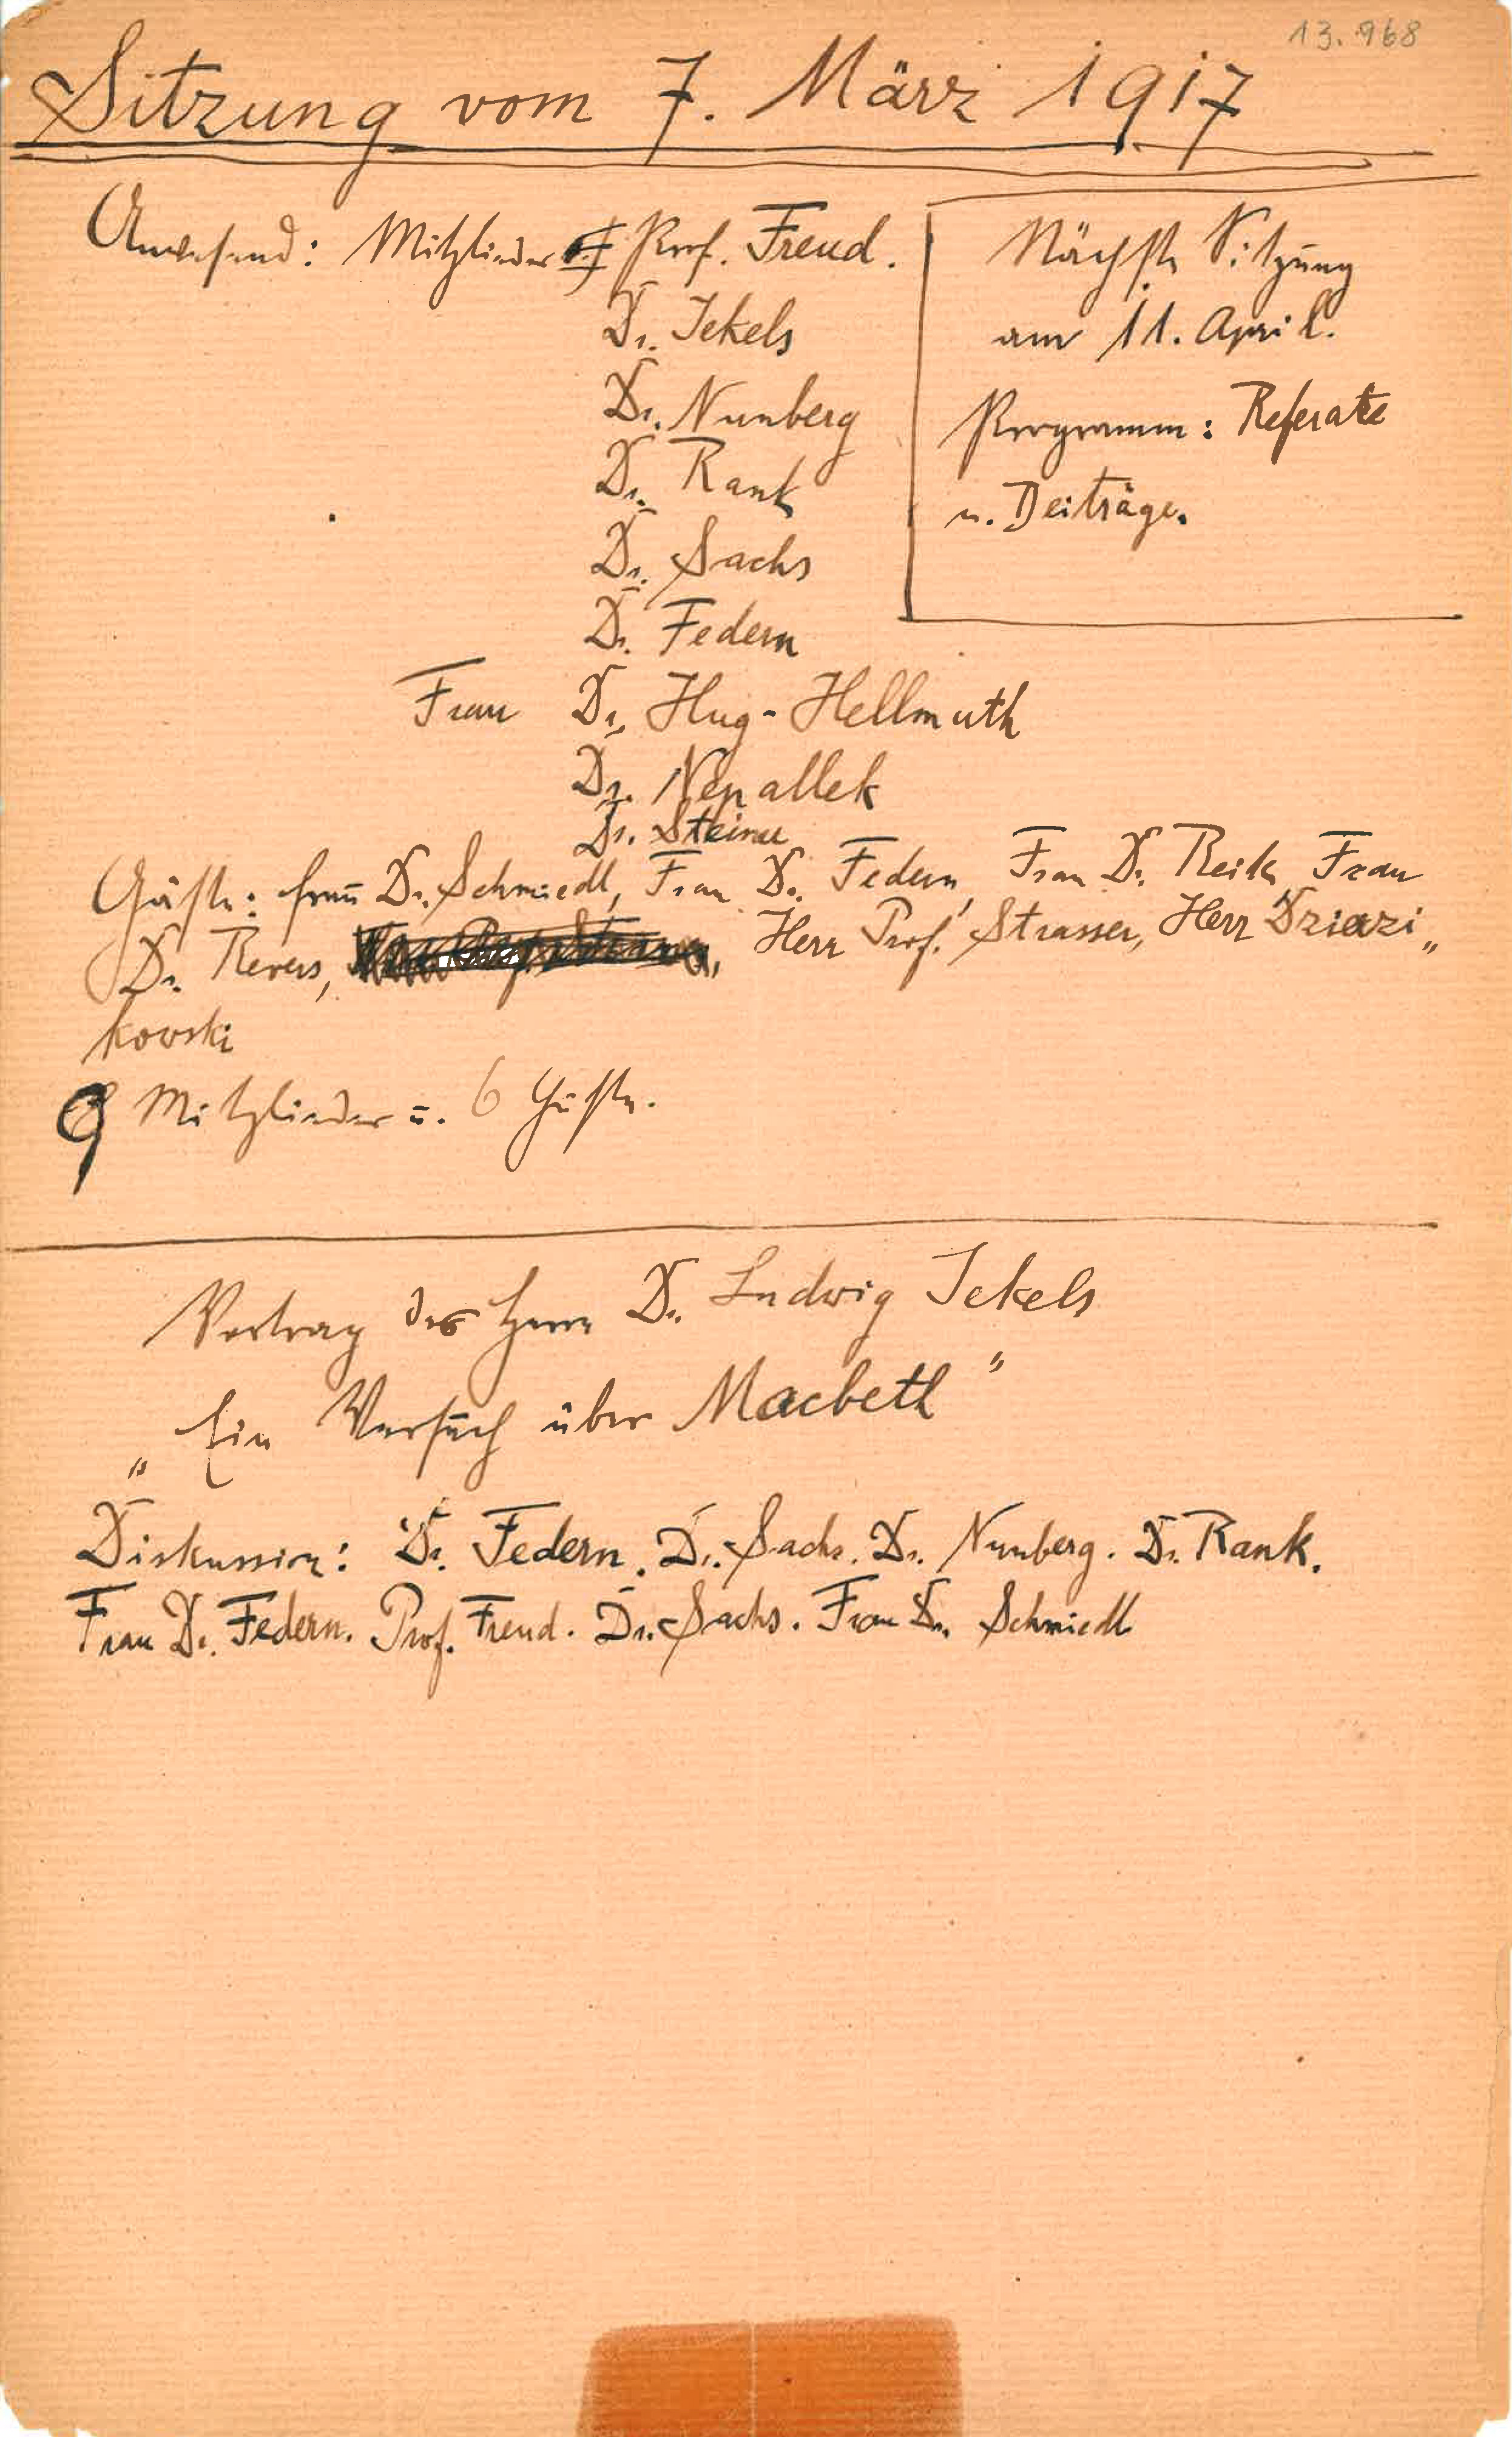 13.968
Sitzung vom 7. März 1917
Anwesend: Mitglieder Prof. Freud.
Dr. Jekels
Dr. Nunberg
Dr. Rank
Dr. Sachs
Dr. Federn
Frau Dr. Hug-Hellmuth
Dr. Nepallek
Dr. Steiner
Nächste Sitzung
am 11. April.
Programm: Referate
u. Beiträge.
Gäste: Frau Dr. Schmiedl, Frau Dr. Federn, Frau Dr. Reik, Frau
Dr. Revers, Herr Prof. Strasser, Herr Dziazi„
kowski
9 Mitglieder u. 6 Gäste.
Vortrag des Herrn Dr. Ludwig Jekels
„Ein Versuch über Macbeth"
Diskussion: Dr. Federn. Dr. Sachs. Dr. Nunberg. Dr. Rank.
Frau Dr. Federn. Prof. Freud. Dr. Sachs. Frau Dr. Schmiedl